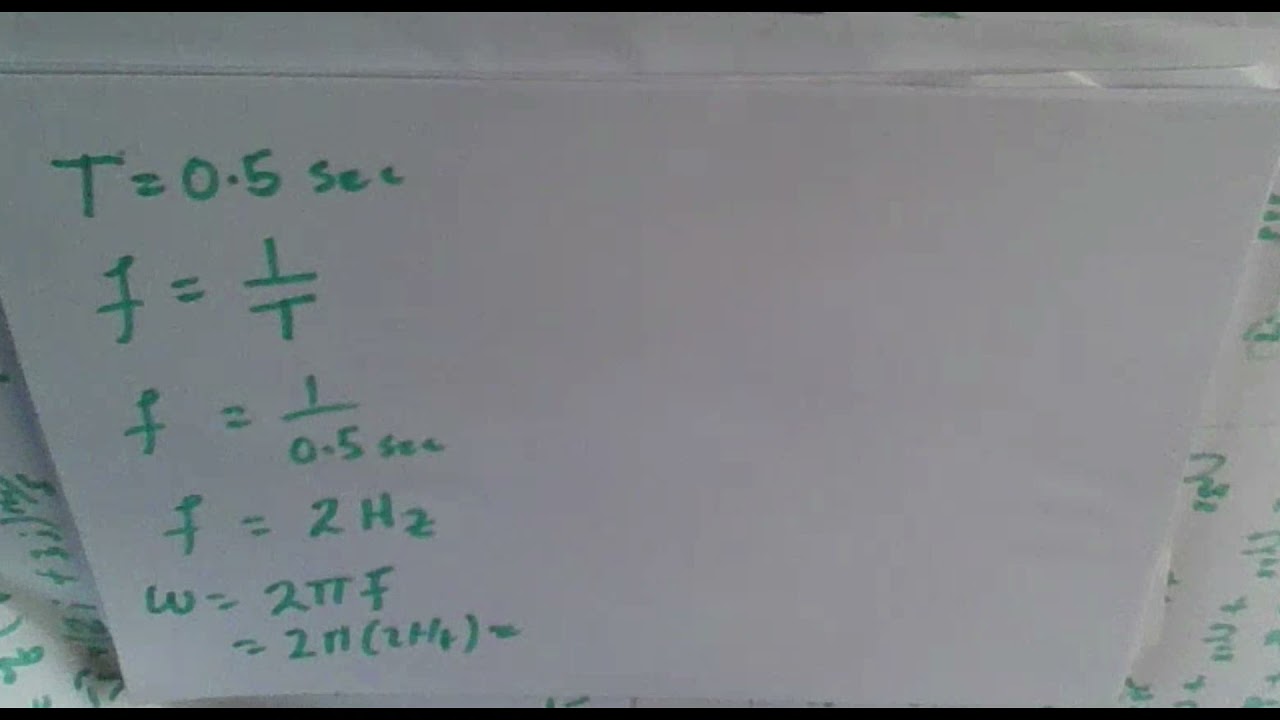 T = 0.5 sec
f = 1/T
f = 1/0.5 sec
f = 2 Hz
ω = 2πf
= 2π(2Hz) =